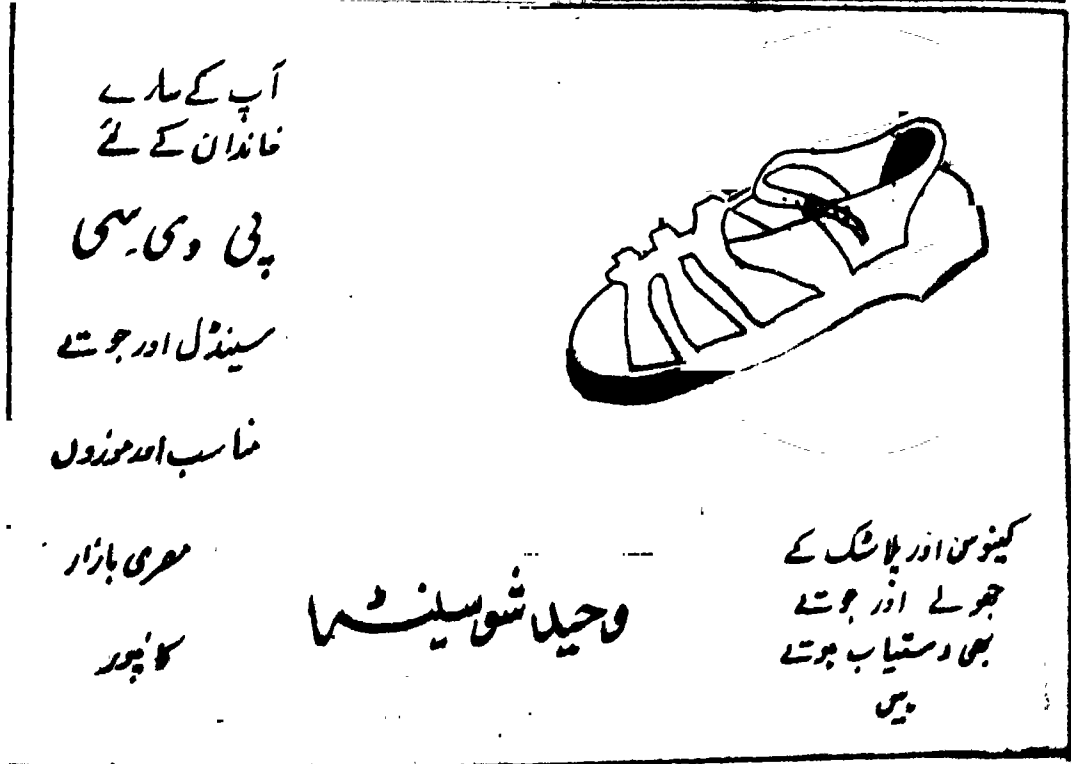 آپ کے سارے
خاندان کے لئے
پی وی۔سی
سینڈل اور جوتے
مناسب اور موزوں
مصری بازار
کانپور
وحید شو سینٹر
کینوس اور پلاسٹک کے
جھولے اور جوتے
بھی دستیاب ہوتے
ہیں